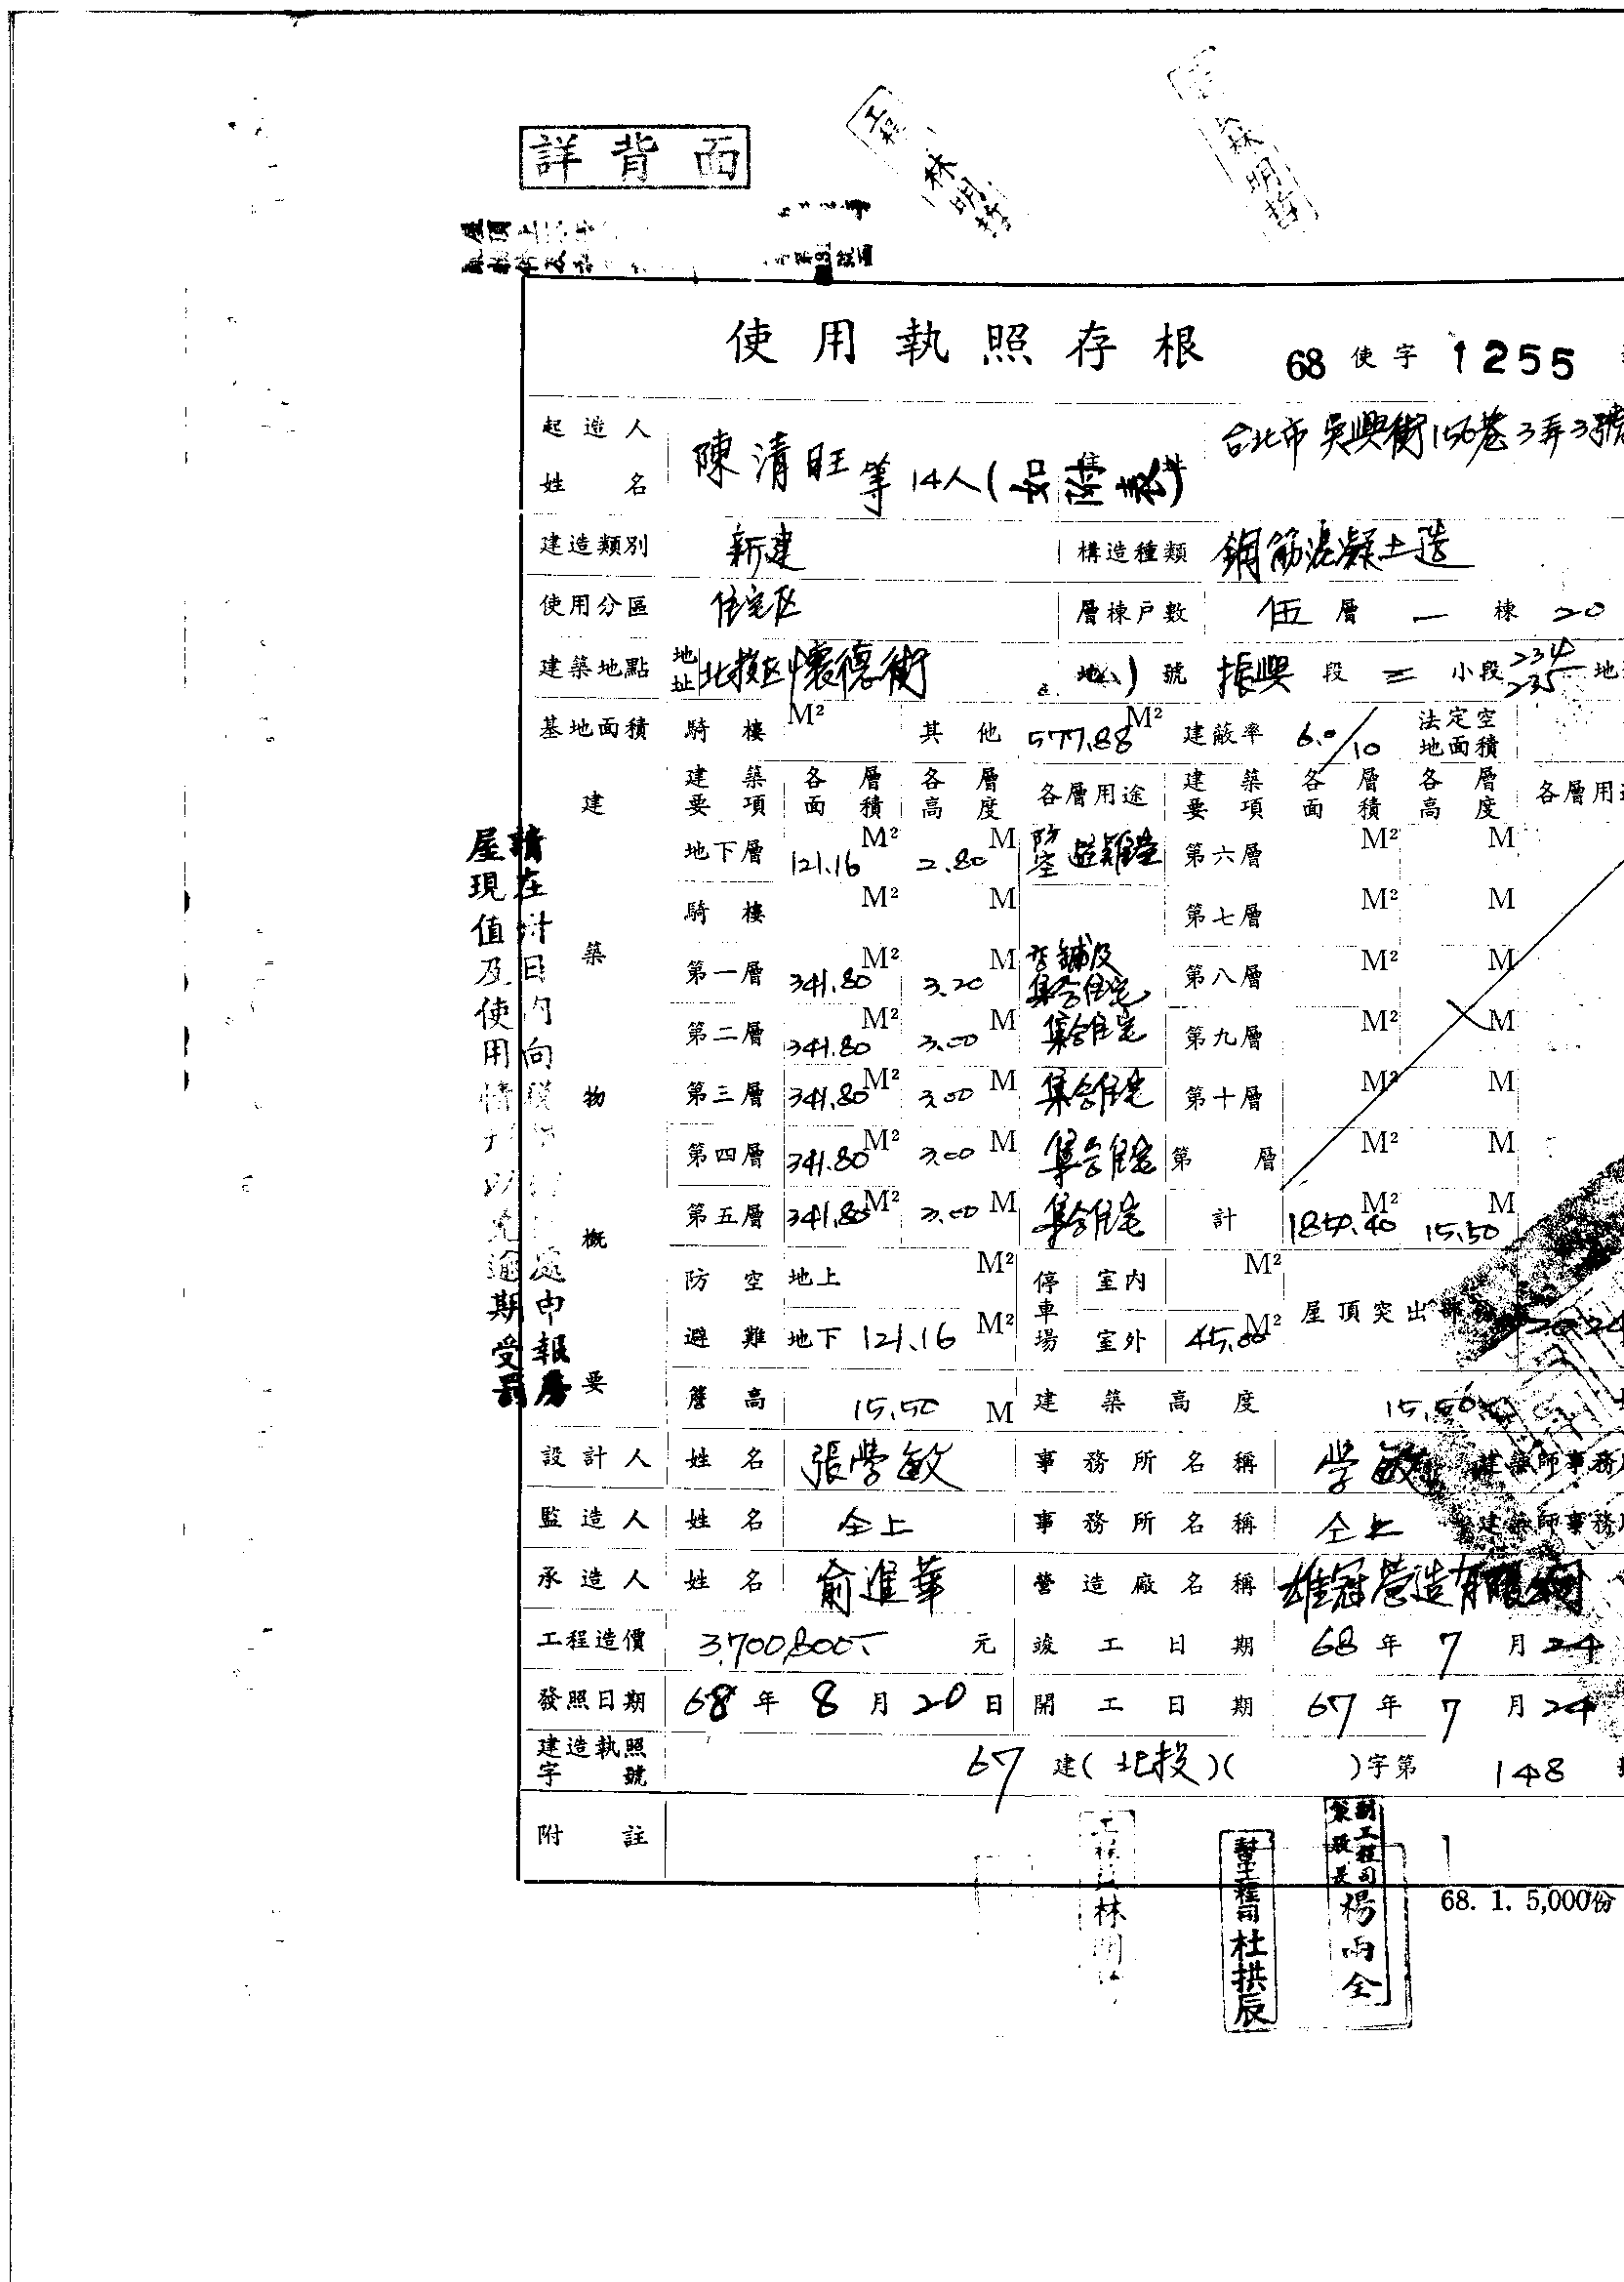 詳背面
工程 林明哲
林明哲
使用執照存根 68 使字 1255
起造人姓名 陳清旺等14人(如附表) 住址 台北市吳興街156巷3弄3號
建造類別 新建 構造種類 鋼筋混凝土造
使用分區 住宅区 層棟戶數 伍層 一棟 20
建築地點 地址 北投区懷德街 地 號 振興段 二小段 234 235 地
基地面積 騎樓 M² 其他 577.88 M² 建蔽率 6.0/10 法定空地面積
建築物概要 建築要項 各層面積 各層高度 各層用途 建築要項 各層面積 各層高度 各層用
地下層 121.16 M² 2.80 M 防空避難室 第六層 M² M
騎樓 M² M 第七層 M² M
第一層 341.80 M² 3.20 M 店舖及集合住宅 第八層 M² M
第二層 341.80 M² 3.00 M 集合住宅 第九層 M² M
第三層 341.80 M² 3.00 M 集合住宅 第十層 M² M
第四層 341.80 M² 3.00 M 集合住宅 第 層 M² M
第五層 341.80 M² 3.00 M 集合住宅 計 M² 15.50 M
防空 地上 M² 停車場 室內 M² 屋頂突出部
避難 地下 121.16 M² 室外 45.00 M²
簷高 15.50 M 建築高度 15.50
設計人 姓名 張學敏 事務所名稱 学敏 建築師事務
監造人 姓名 仝上 事務所名稱 仝上 建築師事務
承造人 姓名 俞進華 營造廠名稱 雄冠營造有限公司
工程造價 3,700,800 元 竣工日期 68年 7月 24
發照日期 68年 8月 20日 開工日期 67年 7月 24
建造執照字號 67 建(北投)( )字第 148
附註
請在卅日內向 處申報房
屋現值及使用情 逾期受罰
68. 1. 5,000份
工程員林明
幫工程司杜拱辰
副工程司 股長 楊雨全